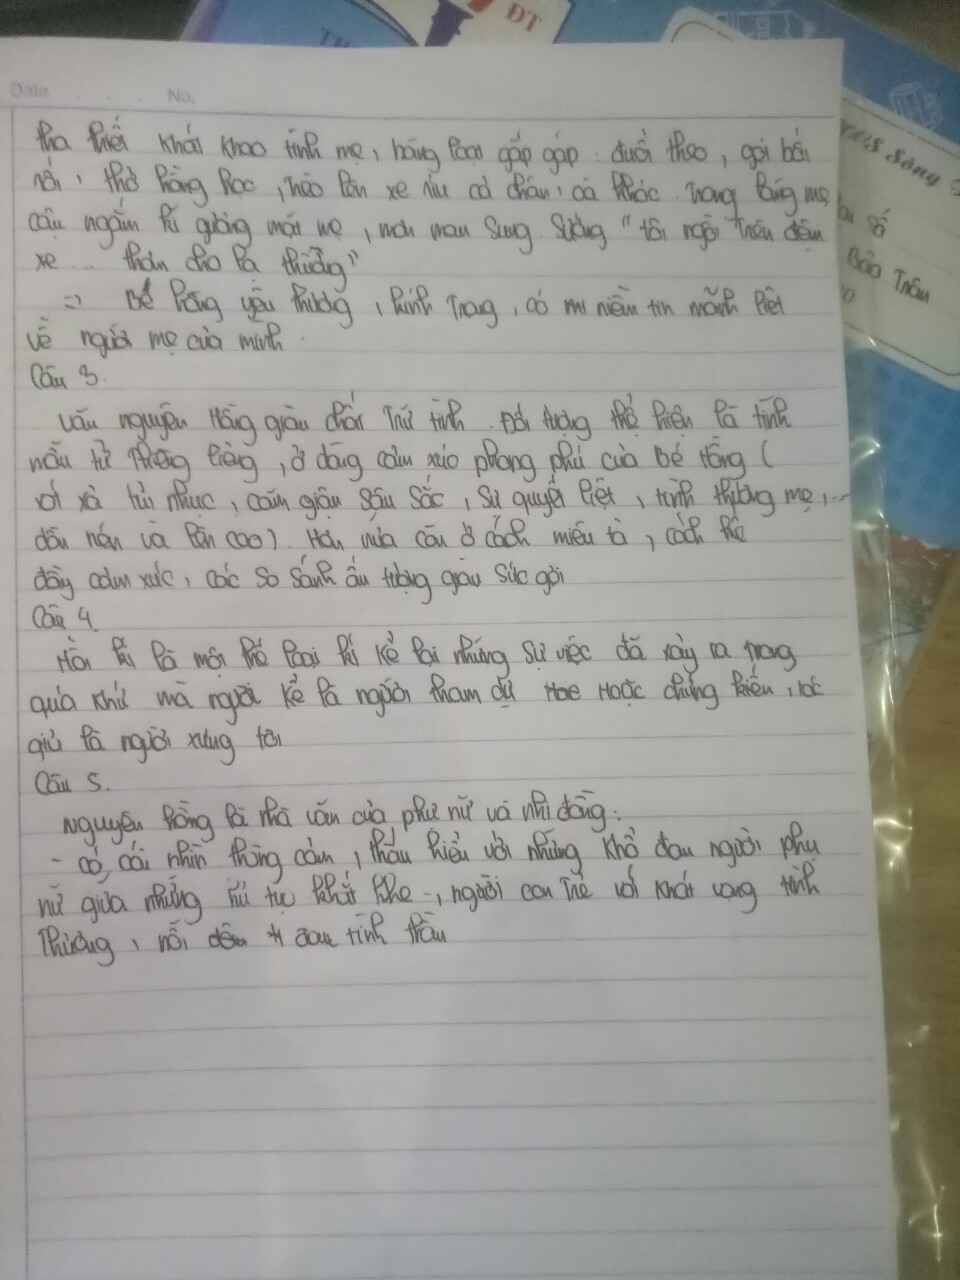 ĐT
TH
Date No.
tha thiết khát khao tình mẹ, hàng loạt gấp gáp đuổi theo, gọi bối
rối, thở hồng hộc, trèo lên xe níu cả chân, oà khóc trong lòng mẹ
cậu ngắm kĩ gương mặt mẹ, mơn man sung sướng "tôi ngồi trên đệm
xe ... thơm tho lạ thường"
=> bé hồng yêu thương, kính trọng, có mi niềm tin mãnh liệt
về người mẹ của mình.
Câu 3.
Văn nguyên Hồng giàu chất trữ tình. Đối tượng thể hiện là tình
mẫu tử thiêng liêng, ở dòng cảm xúc phong phú của bé Hồng (
xót xa tủi nhục, căm giận sâu sắc, sự quyết liệt, tình thương mẹ,...
dồn nén và lên cao) Hơn nữa còn ở cách miêu tả, cách kể
đầy cảm xúc, các so sánh ấn tượng giàu sức gợi
Câu 4.
Hồi kí là một thể loại kí kể lại những sự việc đã xảy ra trong
quá khứ mà người kể là người tham dự Hoe Hoặc chứng kiến, tác
giả là người xưng tôi
Câu 5.
Nguyên hồng là nhà văn của phụ nữ và nhi đồng:
- có cái nhìn thông cảm, thấu hiểu với những khổ đau người phụ
nữ giữa những hủ tục khắt khe, người con trẻ với khát vọng tình
thương, nỗi đau tinh thần
Sông
số
Bảo Trâm